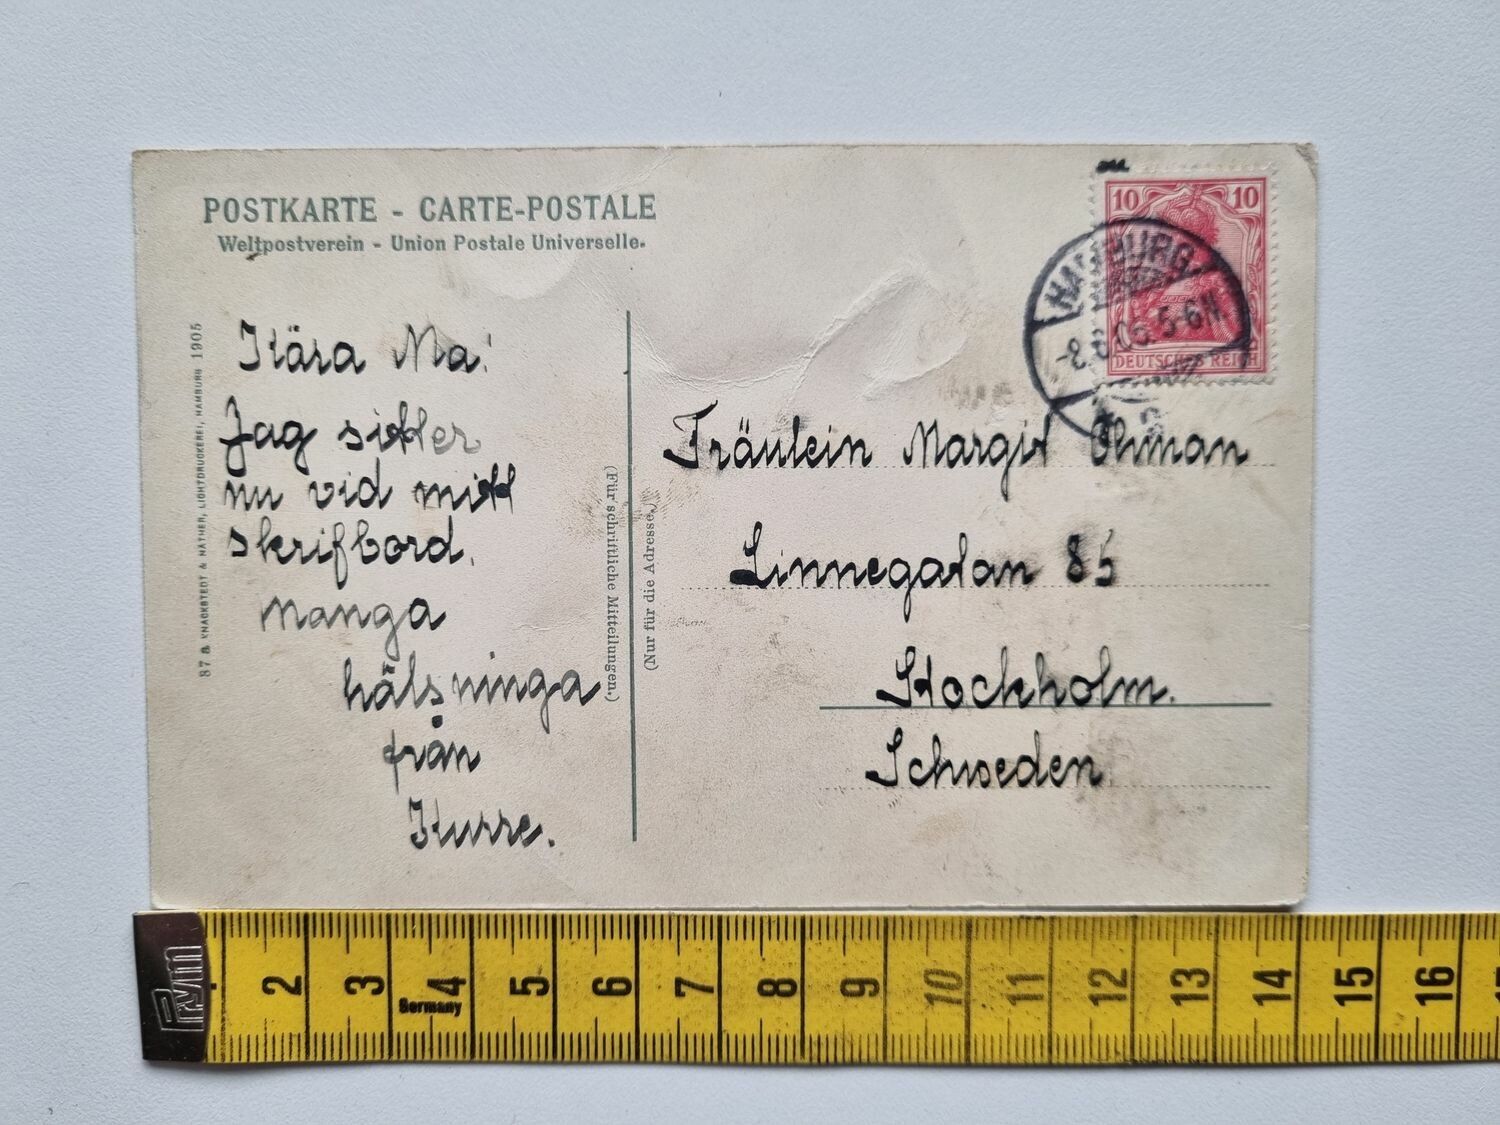 POSTKARTE - CARTE-POSTALE
Weltpostverein - Union Postale Universelle.
10 10
DEUTSCHES REICH
HAMBURG
5-6N.
Kära Ma!
Jag sitter
nu vid mitt
skrifbord.
Många
hälsninga
från
Kurre.
87 a KNACKSTEDT & NÄTHER, LICHTDRUCKEREI, HAMBURG 1905
(Für schriftliche Mitteilungen.)
(Nur für die Adresse.)
Fräulein Margit Öhman
Linnegatan 85
Stockholm.
Schweden
Prym
2 3 4 5 6 7 8 9 10 11 12 13 14 15 16
Germany